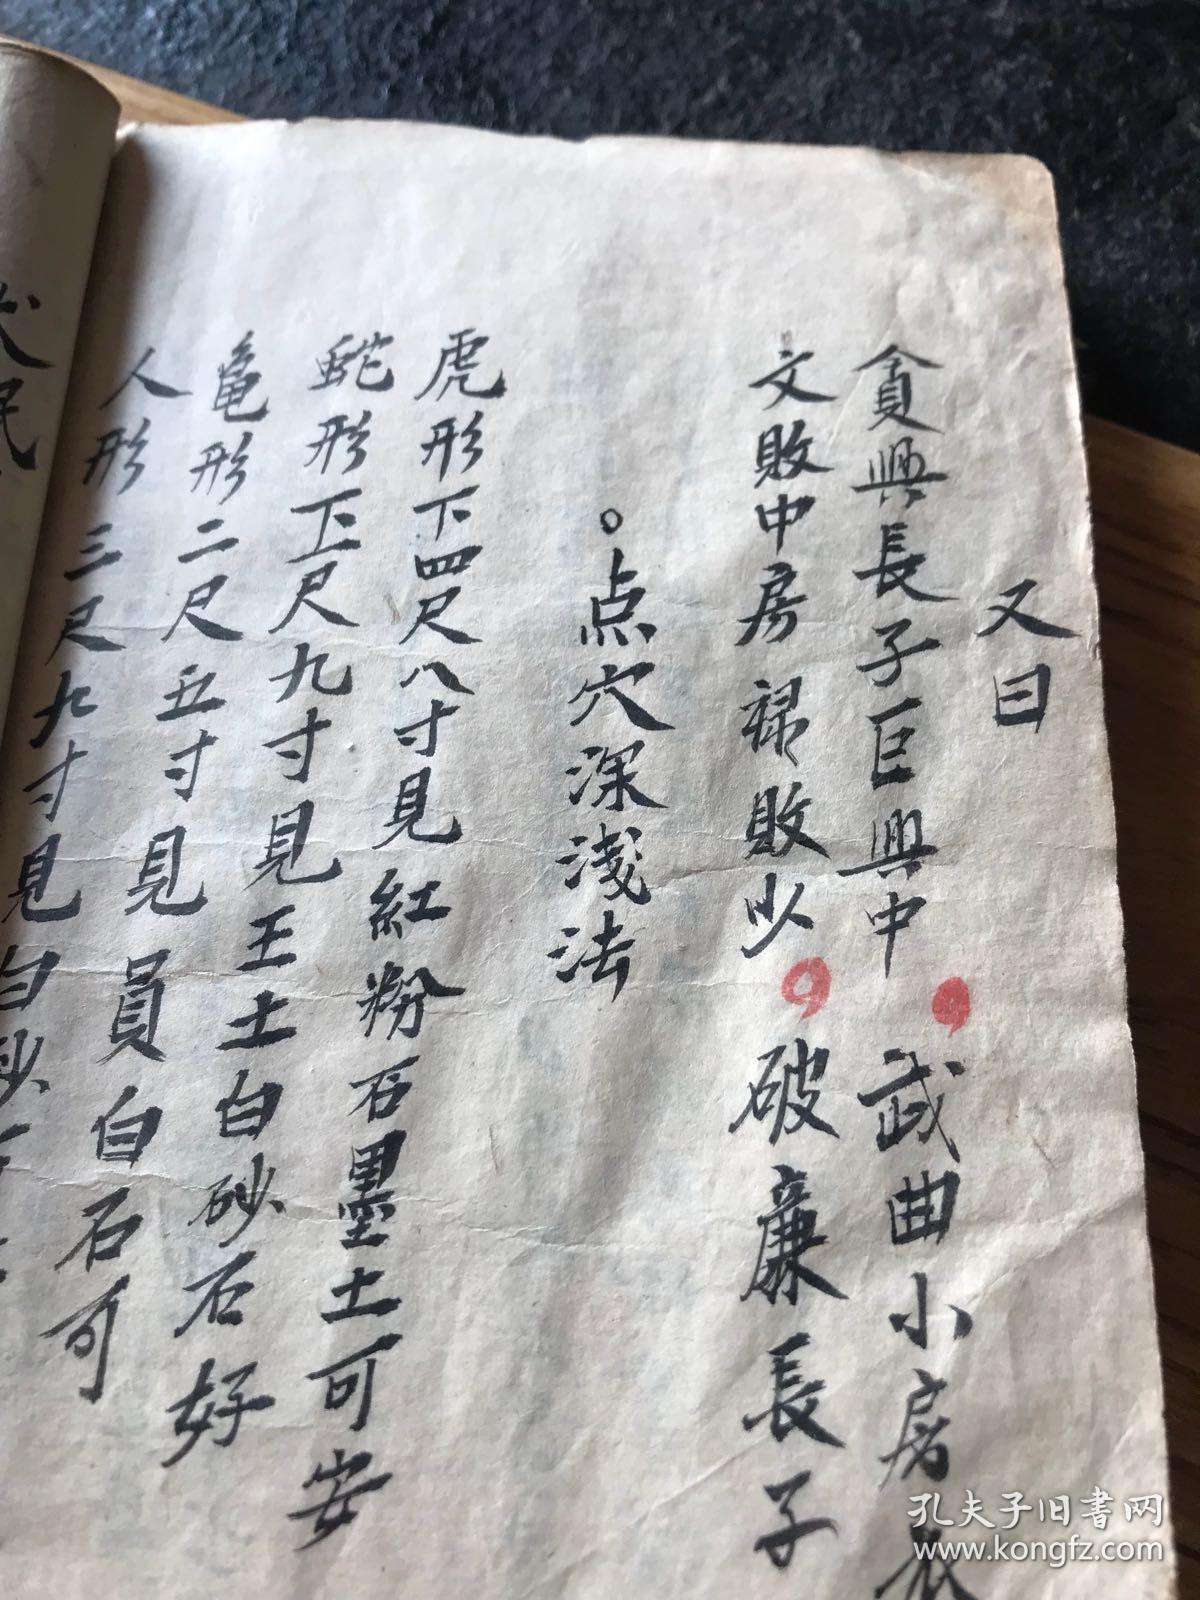 又曰
貪興長子巨興中，武曲小房
文敗中房禄敗少，破廉長子
。点穴深淺法
虎形下四尺八寸見紅粉石墨土可安
蛇形下二尺九寸見王土白砂石好
龜形二尺五寸見員白石可
人形三尺九寸見白砂
孔夫子旧书网
www.kongfz.com